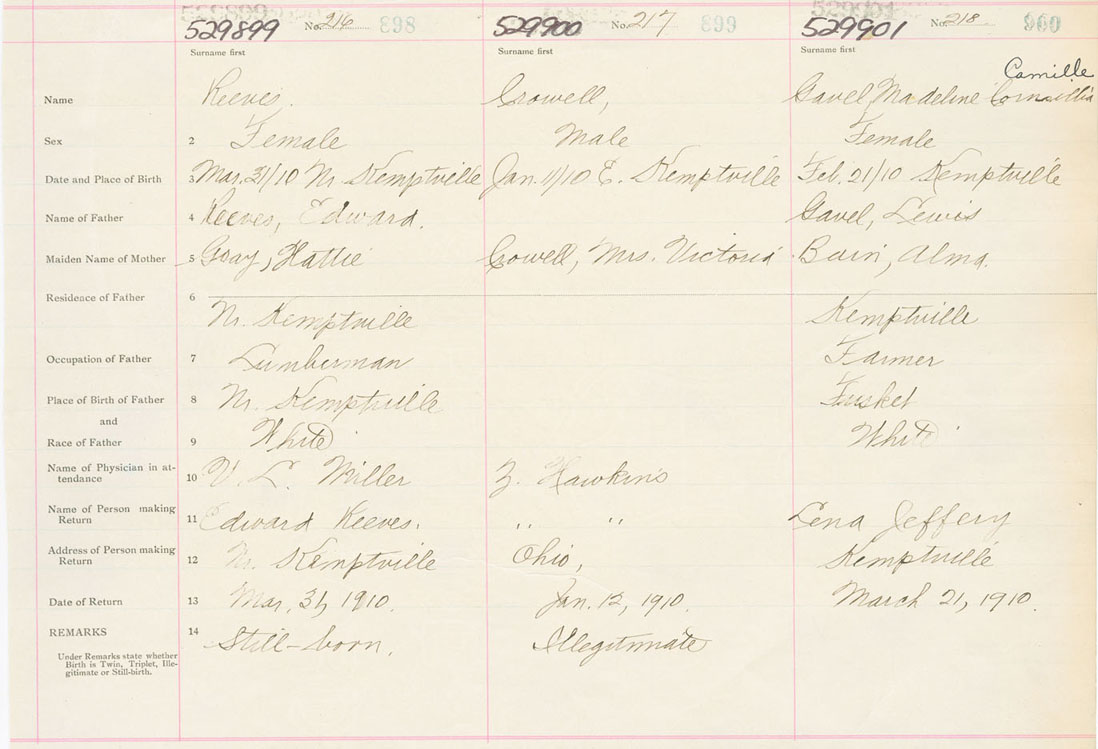 529899 No. 216 898 529900 No. 217 899 529901 No. 218 900
Surname first Surname first Surname first
Camille
Name Reeves. Crowell, Gavel, Madeline
Sex 2 Female Male Female
Date and Place of Birth 3 Mar. 31/10 Nr. Kemptville Jan. 11/10 E. Kemptville Feb. 21/10 Kemptville
Name of Father 4 Reeves, Edward. Gavel, Lewis
Maiden Name of Mother 5 Gray, Hattie Cowell, Mrs. Victoria Bain, Alma.
Residence of Father 6
Nr. Kemptville Kemptville
Occupation of Father 7 Lumberman Farmer
Place of Birth of Father 8 Nr. Kemptville Tusket
and
Race of Father 9 White White
Name of Physician in at-
tendance 10 V. L. Miller Z. Hawkins
Name of Person making
Return 11 Edward Reeves. " " Lena Jeffery
Address of Person making
Return 12 Nr. Kemptville Ohio, Kemptville
Date of Return 13 Mar. 31, 1910. Jan. 12, 1910. March 21, 1910.
REMARKS 14 Still-born. Illegitimate
Under Remarks state whether
Birth is Twin, Triplet, Ille-
gitimate or Still-birth.